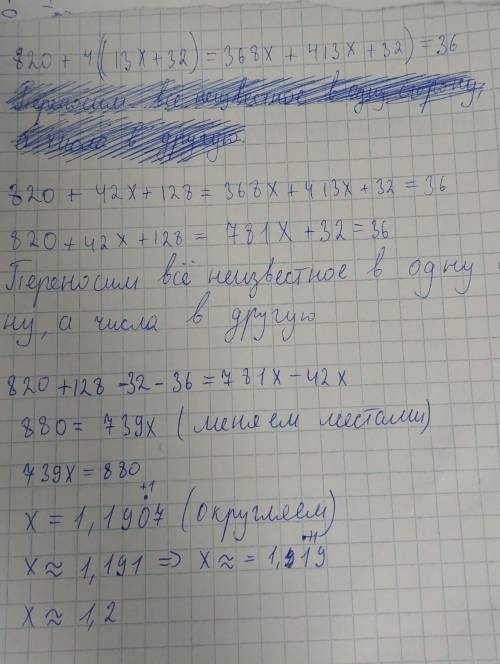 820 + 4((13x+32) = 368x + 413x + 32) = 36
Переносим всё неизвестное в одну сторону,
а числа в другую.
820 + 42x + 128 = 368x + 413x + 32 = 36
820 + 42x + 128 = 781x + 32 = 36
Переносим всё неизвестное в одну
ну, а числа в другую
820 + 128 - 32 - 36 = 781x - 42x
880 = 739x (меняем местами)
739x = 880
+1
x = 1,1907 (округляем)
x ≈ 1,191 => x ≈ = 1,19
x ≈ 1,2